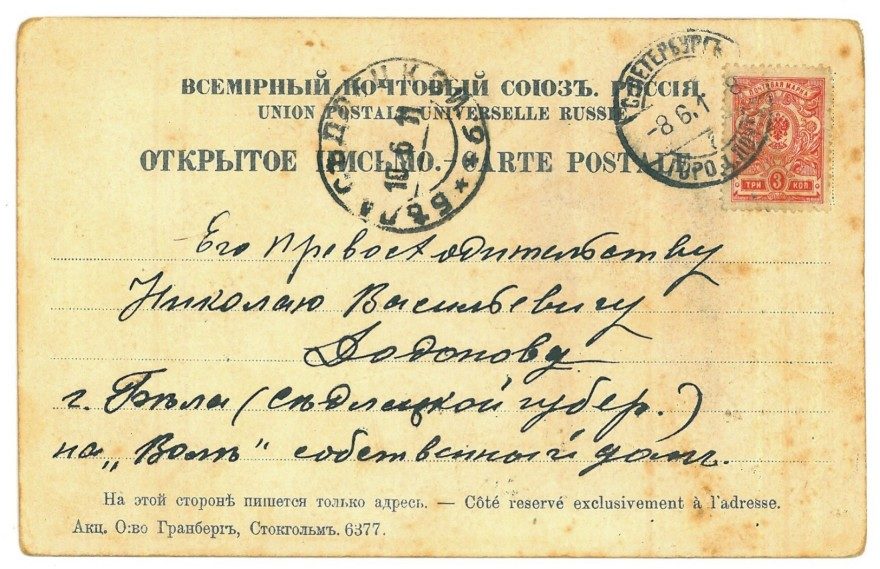 ВСЕМІРНЫЙ ПОЧТОВЫЙ СОЮЗЪ. РОССІЯ
UNION POSTALE UNIVERSELLE RUSSIE
ОТКРЫТОЕ ПИСЬМО.—CARTE POSTALE
С.ПЕТЕРБУРГЪ
-8.6.1
БѢЛА
10.6.11
ПОЧТОВАЯ МАРКА
ТРИ 3 КОП
Его Превосходительству
Николаю Васильевичу
Додонову
г. Бѣла (Сѣдлецкой губер.)
на „Воле" собственный домъ.
На этой сторонѣ пишется только адресь. — Côté reservé exclusivement à l'adresse.
Акц. О:во Гранбергъ, Стокгольмъ. 6377.